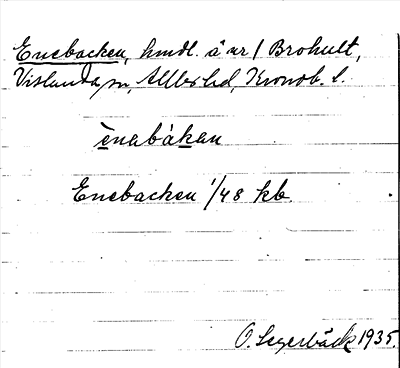 Enebacken, hmdl. å nr 1 Brohult,
Vislanda sn, Allbo hd, Kronob. l.
ènabàkan
Enebacken 1/48 kb.
O. Segerbäck 1935.